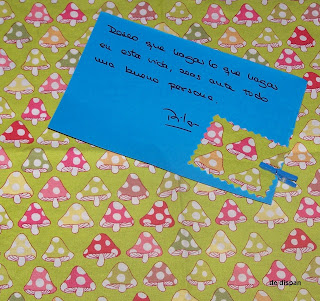 Deseo que hagas lo que hagas
en esta vida, seas ante todo
una buena persona.
de dispan